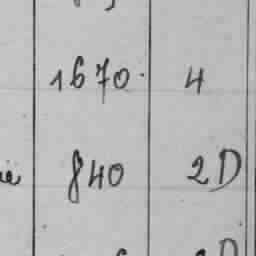 1670. 4
840 2D